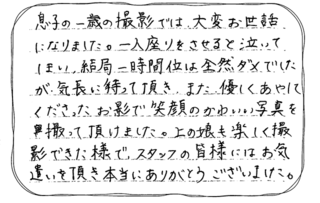 息子の一歳の撮影では、大変お世話
になりました。一人座りをさせると泣いて
しまい、結局一時間位は全然ダメでした
が、気長に待って頂き、また、優しくあやして
くださったお影で笑顔のかわいい写真を
撮って頂けました。上の娘も楽しく撮
影できた様で、スタッフの皆様にはお気
遣いを頂き本当にありがとうございました。